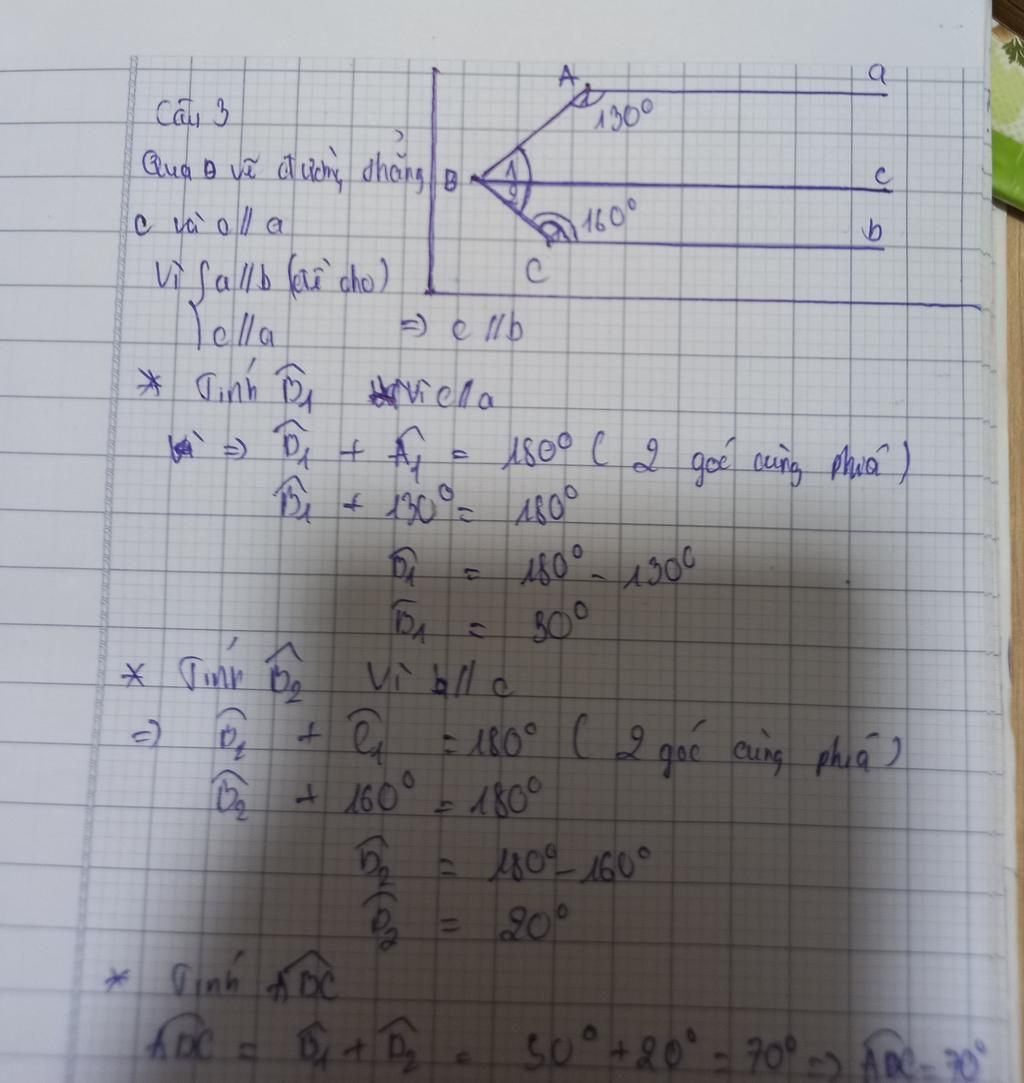 Câu 3
Qua B vẽ đường thẳng
c và c // a
Vì { a // b (đề cho)
c // a => c // b
A a
130°
B 1 c
2
160° b
C
* Tính B̂1 Vì c // a
=> B̂1 + Â1 = 180° ( 2 góc cùng phía )
B̂1 + 130° = 180°
B̂1 = 180° - 130°
B̂1 = 50°
* Tính B̂2 Vì b // c
=> B̂2 + Ĉ1 = 180° ( 2 góc cùng phía )
B̂2 + 160° = 180°
B̂2 = 180° - 160°
B̂2 = 20°
* Tính ABC
ABC = B̂1 + B̂2 = 50° + 20° = 70° => ABC = 70°